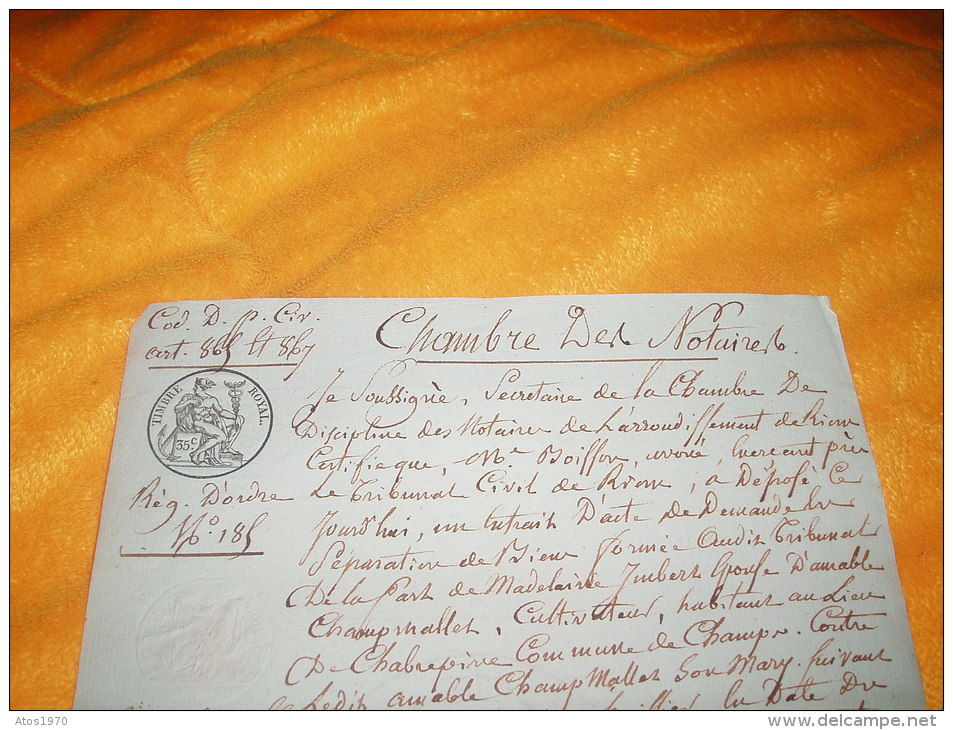 Cod. D. p. Civ.
art. 865 et 867
Chambre Des Notaires.
TIMBRE ROYAL.
35 c
Rég. D'ordre
N.o 185
Je Soussigné, Secretaire de la Chambre De
Discipline des Notaires de L'arrondissement de Riom
Certifie que, Me Boisson, avoué, près
Le Tribunal Civil de Riom, a Déposé Ce
Jourd'hui, un Extrait D'acte De Demande En
Séparation de Biens formée Audit Tribunal
De la Part de Madelaine Imbert Epouse D'amable
Champmallet, Cultivateur, habitant au Lieu
De Chabrepine Commune de Champs. Contre
Ledit amable ChampMallet Son Mary. Suivant
En Date Du
Atos1970
www.delcampe.net